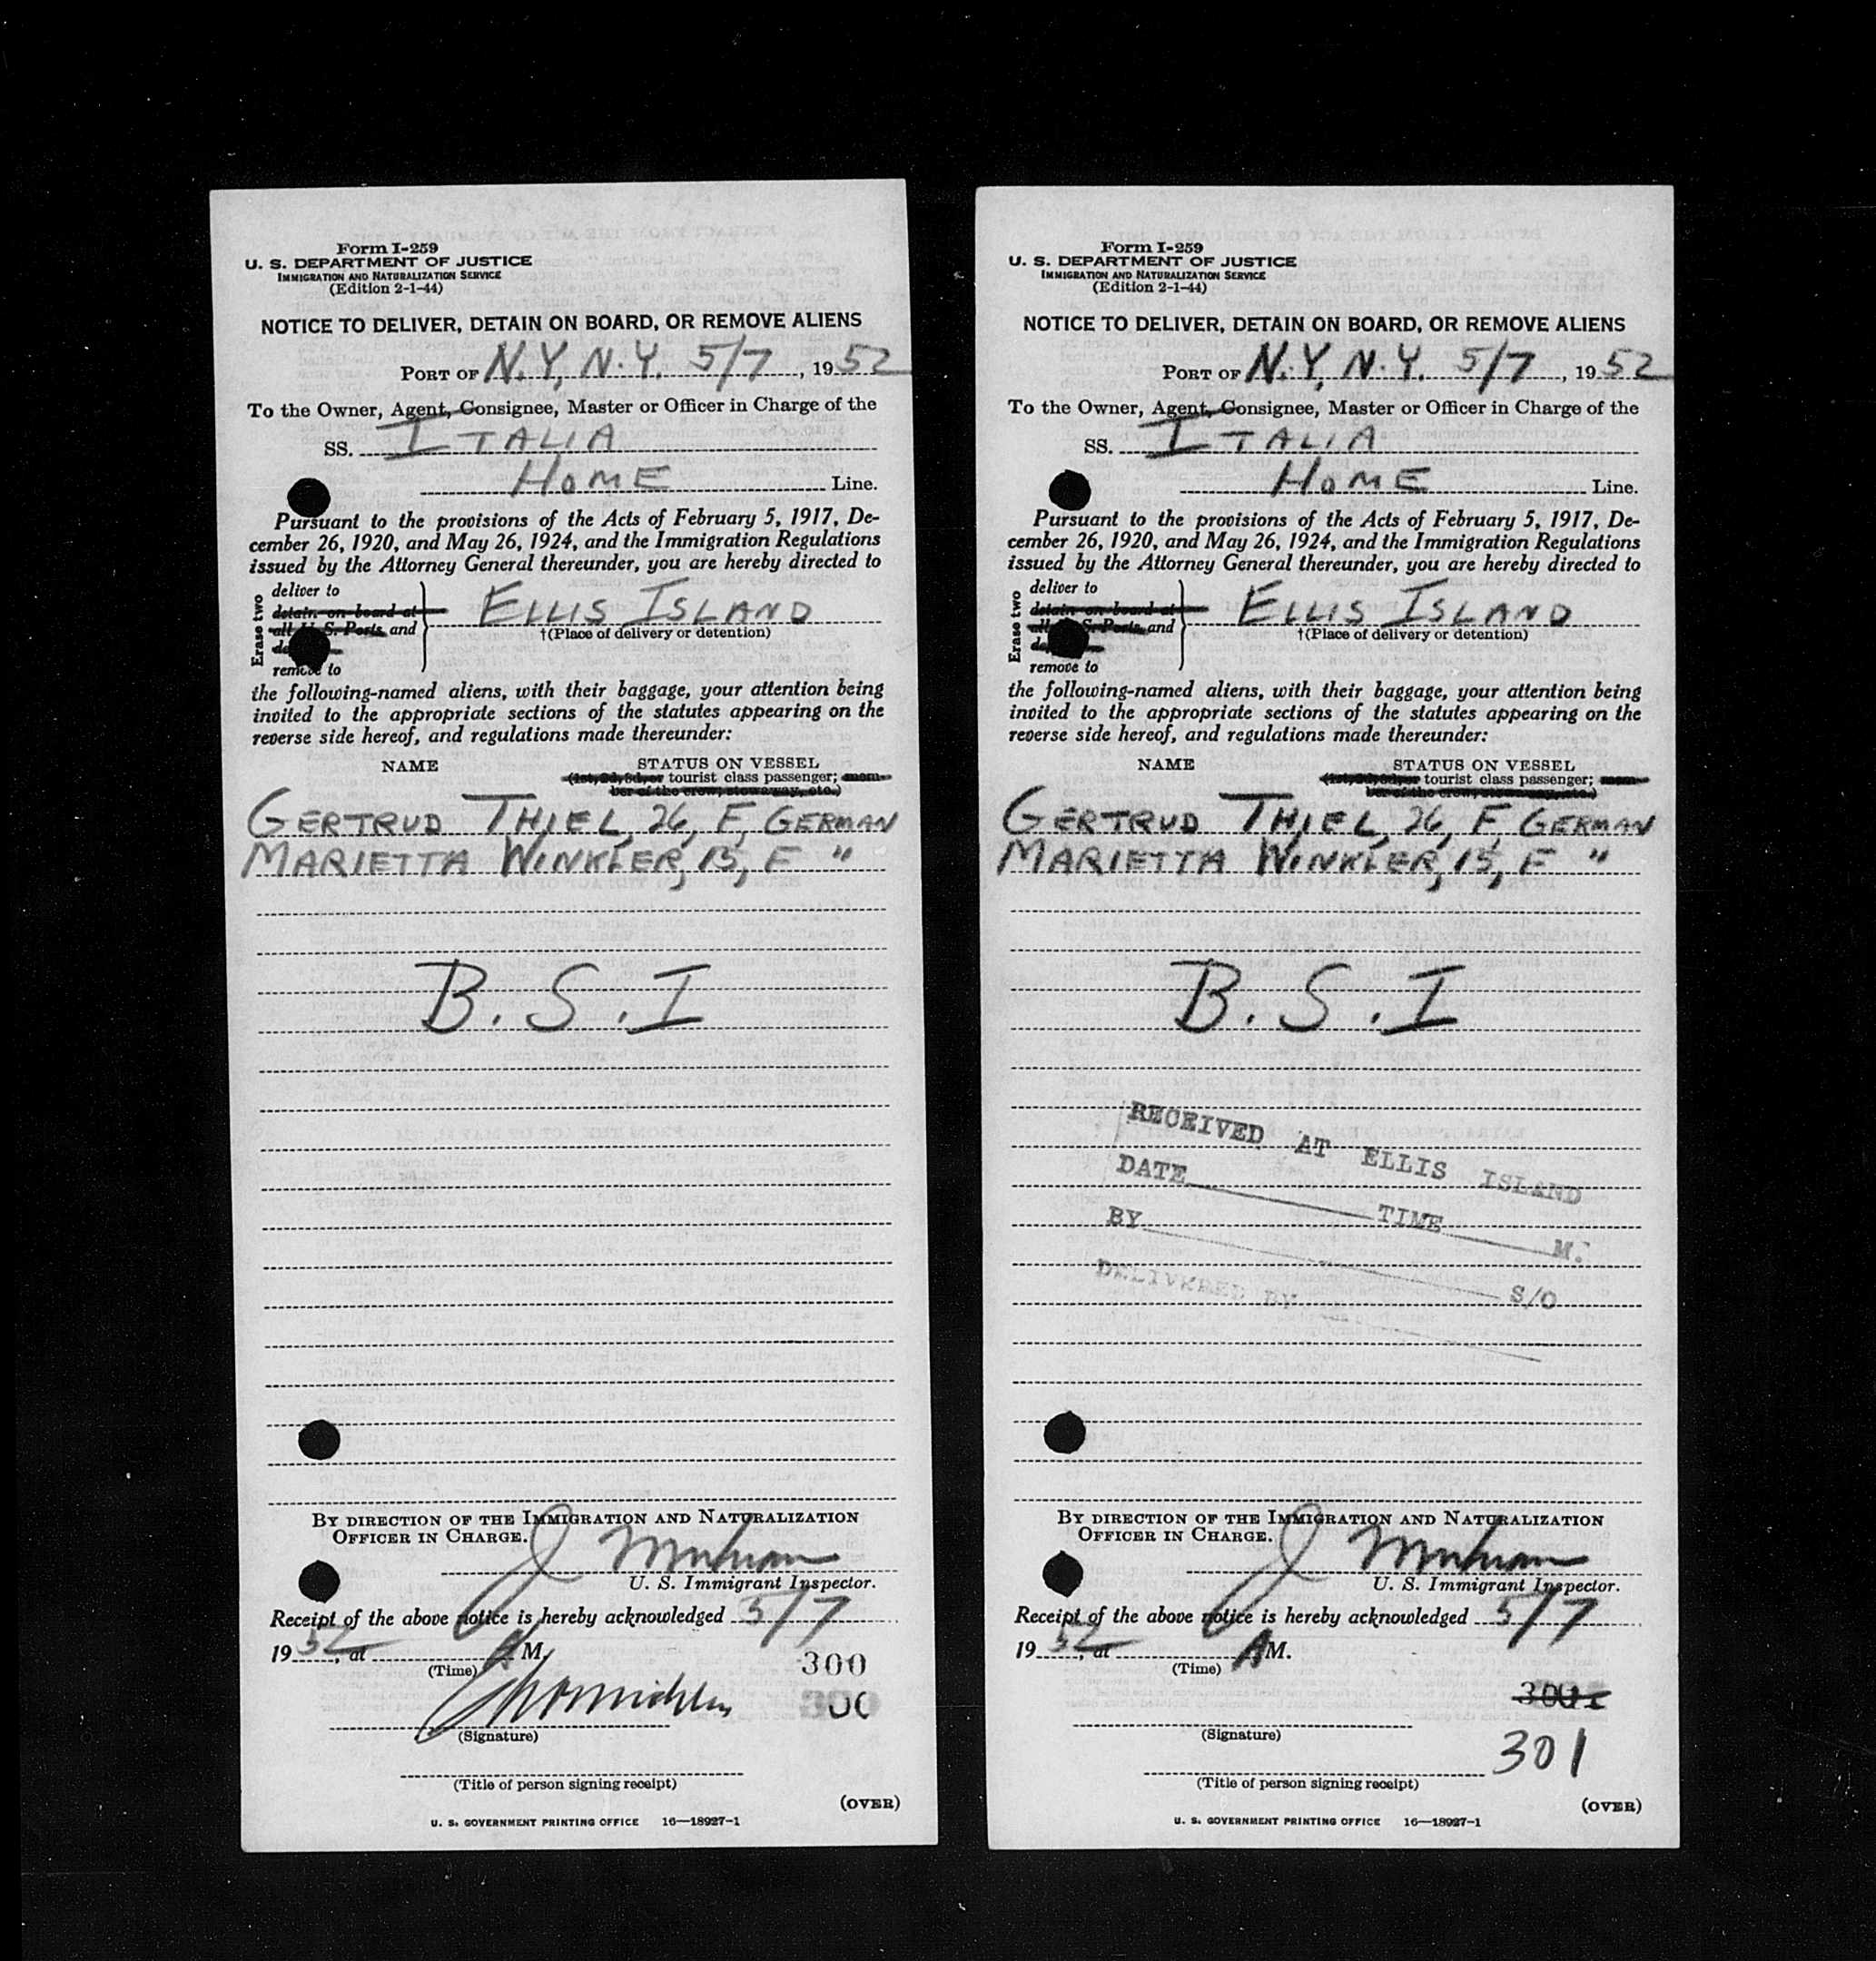 Form I-259
U. S. DEPARTMENT OF JUSTICE
IMMIGRATION AND NATURALIZATION SERVICE
(Edition 2-1-44)
NOTICE TO DELIVER, DETAIN ON BOARD, OR REMOVE ALIENS
PORT OF N.Y, N.Y. 5/7, 1952
To the Owner, Agent, Consignee, Master or Officer in Charge of the
SS. ITALIA
HOME Line.
Pursuant to the provisions of the Acts of February 5, 1917, De-
cember 26, 1920, and May 26, 1924, and the Immigration Regulations
issued by the Attorney General thereunder, you are hereby directed to
Erase two
deliver to
detain on board at
all U. S. Ports and
remove to
ELLIS ISLAND
†(Place of delivery or detention)
the following-named aliens, with their baggage, your attention being
invited to the appropriate sections of the statutes appearing on the
reverse side hereof, and regulations made thereunder:
NAME STATUS ON VESSEL
(1st, 2d, 3d, or tourist class passenger; mem-
ber of the crew; stowaway, etc.)
GERTRUD THIEL, 26, F, GERMAN
MARIETTA WINKLER, 15, F "
B.S.I
BY DIRECTION OF THE IMMIGRATION AND NATURALIZATION
OFFICER IN CHARGE.
U. S. Immigrant Inspector.
Receipt of the above notice is hereby acknowledged 5/7
1952, at A M.
(Time)
300
(Signature)
(Title of person signing receipt)
(OVER)
U. S. GOVERNMENT PRINTING OFFICE 16—18927-1
Form I-259
U. S. DEPARTMENT OF JUSTICE
IMMIGRATION AND NATURALIZATION SERVICE
(Edition 2-1-44)
NOTICE TO DELIVER, DETAIN ON BOARD, OR REMOVE ALIENS
PORT OF N.Y, N.Y. 5/7, 1952
To the Owner, Agent, Consignee, Master or Officer in Charge of the
SS. ITALIA
HOME Line.
Pursuant to the provisions of the Acts of February 5, 1917, De-
cember 26, 1920, and May 26, 1924, and the Immigration Regulations
issued by the Attorney General thereunder, you are hereby directed to
Erase two
deliver to
detain on board at
all U. S. Ports and
remove to
ELLIS ISLAND
†(Place of delivery or detention)
the following-named aliens, with their baggage, your attention being
invited to the appropriate sections of the statutes appearing on the
reverse side hereof, and regulations made thereunder:
NAME STATUS ON VESSEL
(1st, 2d, 3d, or tourist class passenger; mem-
ber of the crew; stowaway, etc.)
GERTRUD THIEL, 26, F, GERMAN
MARIETTA WINKLER, 15, F "
B.S.I
RECEIVED AT ELLIS ISLAND
DATE TIME M.
BY S/O
DELIVERED BY
BY DIRECTION OF THE IMMIGRATION AND NATURALIZATION
OFFICER IN CHARGE.
U. S. Immigrant Inspector.
Receipt of the above notice is hereby acknowledged 5/7
1952, at AM.
(Time)
(Signature)
301
(Title of person signing receipt)
(OVER)
U. S. GOVERNMENT PRINTING OFFICE 16—18927-1